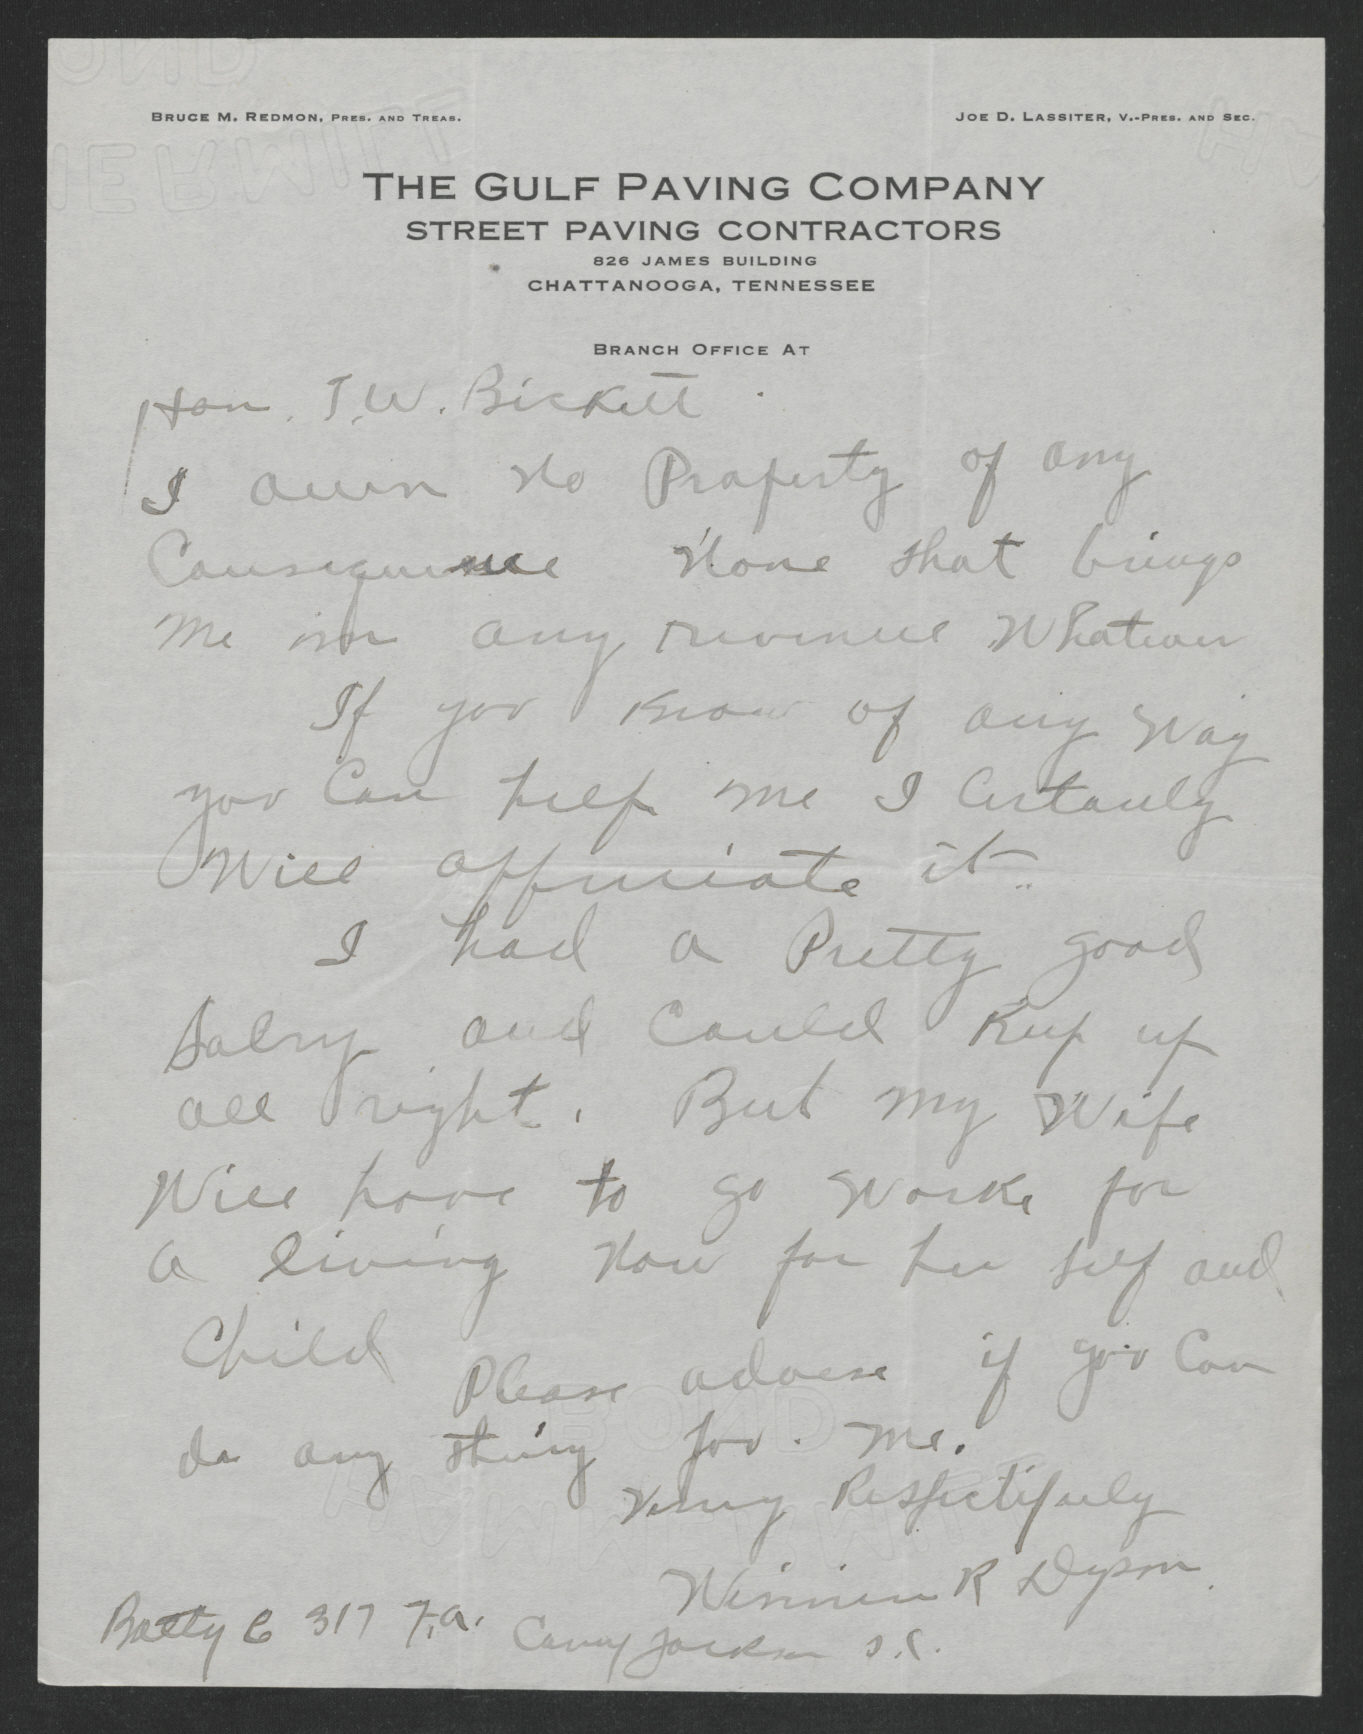 BRUCE M. REDMON, PRES. AND TREAS.
JOE D. LASSITER, V.-PRES. AND SEC.
THE GULF PAVING COMPANY
STREET PAVING CONTRACTORS
826 JAMES BUILDING
CHATTANOOGA, TENNESSEE
BRANCH OFFICE AT
Hon. T.W. Bickett.
I own no Property of any
Consequence None that brings
Me in any revenue Whatever
If you Know of any Way
you Can help me I Certanly
Will appreciate it..
I had a Pretty good
Salry and Could Keep up
all right. But my Wife
Will have to go Worke for
a living Now for her self and
Child
Please advese if you Can
do any thing for. me.
Very Respectifully
R Dyson.
Batty C 317 F.A. Camp Jackson S.C.
BOND
HAMMERMILL
BOND
HAMMERMILL